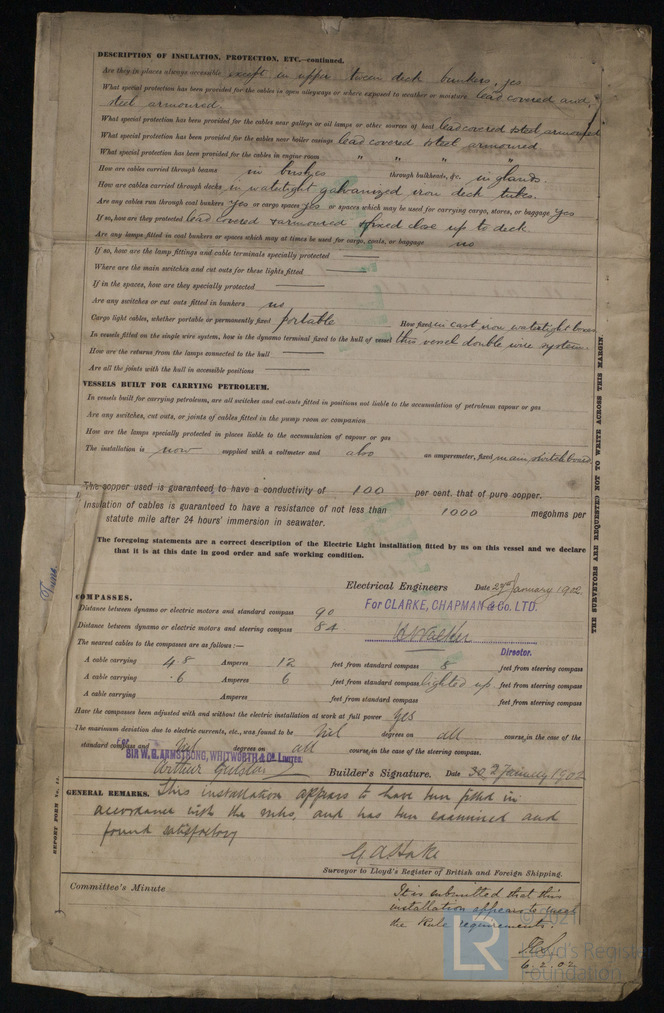 DESCRIPTION OF INSULATION, PROTECTION, ETC.—continued.
Are they in places always accessible except in upper tween deck bunkers, yes
What special protection has been provided for the cables in open alleyways or where exposed to weather or moisture lead covered and
steel armoured.
What special protection has been provided for the cables near galleys or oil lamps or other sources of heat lead covered steel armoured
What special protection has been provided for the cables near boiler casings lead covered steel armoured
What special protection has been provided for the cables in engine room " " " "
How are cables carried through beams in bushes through bulkheads, &c. in glands.
How are cables carried through decks in watertight galvanized iron deck tubes.
Are any cables run through coal bunkers yes or cargo spaces yes or spaces which may be used for carrying cargo, stores, or baggage yes
If so, how are they protected lead covered & armoured & fixed close up to deck
Are any lamps fitted in coal bunkers or spaces which may at times be used for cargo, coals, or baggage no
If so, how are the lamp fittings and cable terminals specially protected
Where are the main switches and cut outs for these lights fitted
If in the spaces, how are they specially protected
Are any switches or cut outs fitted in bunkers no
Cargo light cables, whether portable or permanently fixed portable How fixed in cast iron watertight boxes
In vessels fitted on the single wire system, how is the dynamo terminal fixed to the hull of vessel this vessel double wire system.
How are the returns from the lamps connected to the hull
Are all the joints with the hull in accessible positions
VESSELS BUILT FOR CARRYING PETROLEUM.
In vessels built for carrying petroleum, are all switches and cut-outs fitted in positions not liable to the accumulation of petroleum vapour or gas
Are any switches, cut outs, or joints of cables fitted in the pump room or companion
How are the lamps specially protected in places liable to the accumulation of vapour or gas
The installation is now supplied with a voltmeter and also an amperemeter, fixed main switch board
The copper used is guaranteed to have a conductivity of 100 per cent. that of pure copper.
Insulation of cables is guaranteed to have a resistance of not less than 1000 megohms per
statute mile after 24 hours' immersion in seawater.
The foregoing statements are a correct description of the Electric Light installation fitted by us on this vessel and we declare
that it is at this date in good order and safe working condition.
Electrical Engineers Date 29th January 1902
For CLARKE, CHAPMAN & Co. LTD.
Director.
COMPASSES.
Distance between dynamo or electric motors and standard compass 90
Distance between dynamo or electric motors and steering compass 84
The nearest cables to the compasses are as follows:—
A cable carrying 48 Amperes 12 feet from standard compass 8 feet from steering compass
A cable carrying .6 Amperes 6 feet from standard compass lighted up feet from steering compass
A cable carrying Amperes feet from standard compass feet from steering compass
Have the compasses been adjusted with and without the electric installation at work at full power yes
The maximum deviation due to electric currents, etc., was found to be Nil degrees on all course, in the case of the
standard compass and Nil degrees on all course, in the case of the steering compass.
For SIR W. G. ARMSTRONG, WHITWORTH & Co. LIMITED.
Builder's Signature. Date 30 January 1902
GENERAL REMARKS. This installation appears to have been fitted in
accordance with the rules, and has been examined and
found satisfactory
Surveyor to Lloyd's Register of British and Foreign Shipping.
Committee's Minute
It is submitted that this
installation appears to meet
the Rule requirements.
6.2.02
THE SURVEYORS ARE REQUESTED NOT TO WRITE ACROSS THIS MARGIN.
LR
Lloyd's Register
Foundation